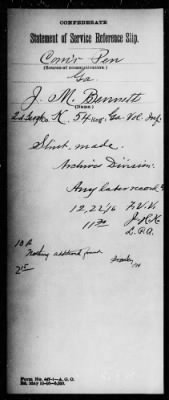 CONFEDERATE
Statement of Service Reference Slip.
Com'r Pen
(Source of communication.)
Ga
J. M. Bennett
(Name.)
2d Sergt Co. K, 54 Reg't Ga Vol. Inf.
made.
Archive Division.
Any later record
12/22/16 F.V.V.
11 30 J.H.K
10 A
Nothing additional found
215
Form No. 447-1—A. G. O.